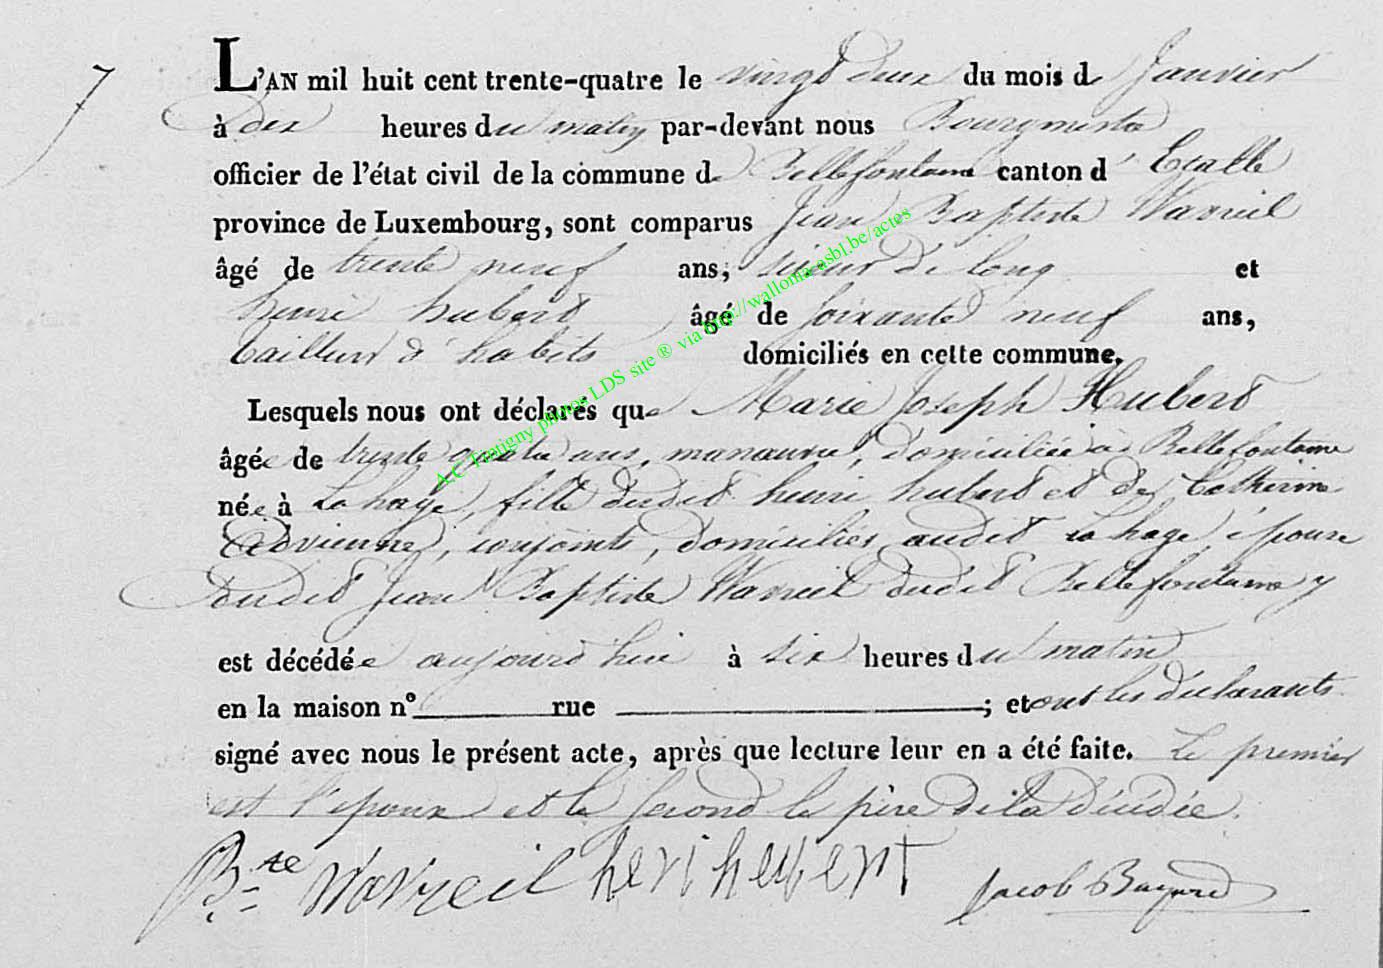 7
L'AN mil huit cent trente-quatre le vingt deux du mois de Janvier
à dix heures du matin par-devant nous Bourgmestre
officier de l'état civil de la commune de Bellefontaine canton d'Etalle
province de Luxembourg, sont comparus Jean Baptiste Wavreil
âgé de trente neuf ans, scieur de long et
henri hubert âgé de soixante neuf ans,
tailleur d'habits domiciliés en cette commune.
Lesquels nous ont déclarés que Marie Joseph Hubert
âgée de trente quatre ans, manœuvre, domiciliée à Bellefontaine
née à Lahage, fille dudit henri hubert et de Catherine
conjoints, domiciliés audit Lahage, épouse
dudit Jean Baptiste Wavreil dudit Bellefontaine
est décédée aujourd'hui à six heures du matin
en la maison n° rue ; et ont les déclarants
signé avec nous le présent acte, après que lecture leur en a été faite. Le premier
est l'epoux et le second le père de la décédée.
Bte Wavreil henri heubert Jacob Bayard
A.C Tintigny photos LDS site ® via http://wallonia-asbl.be/actes